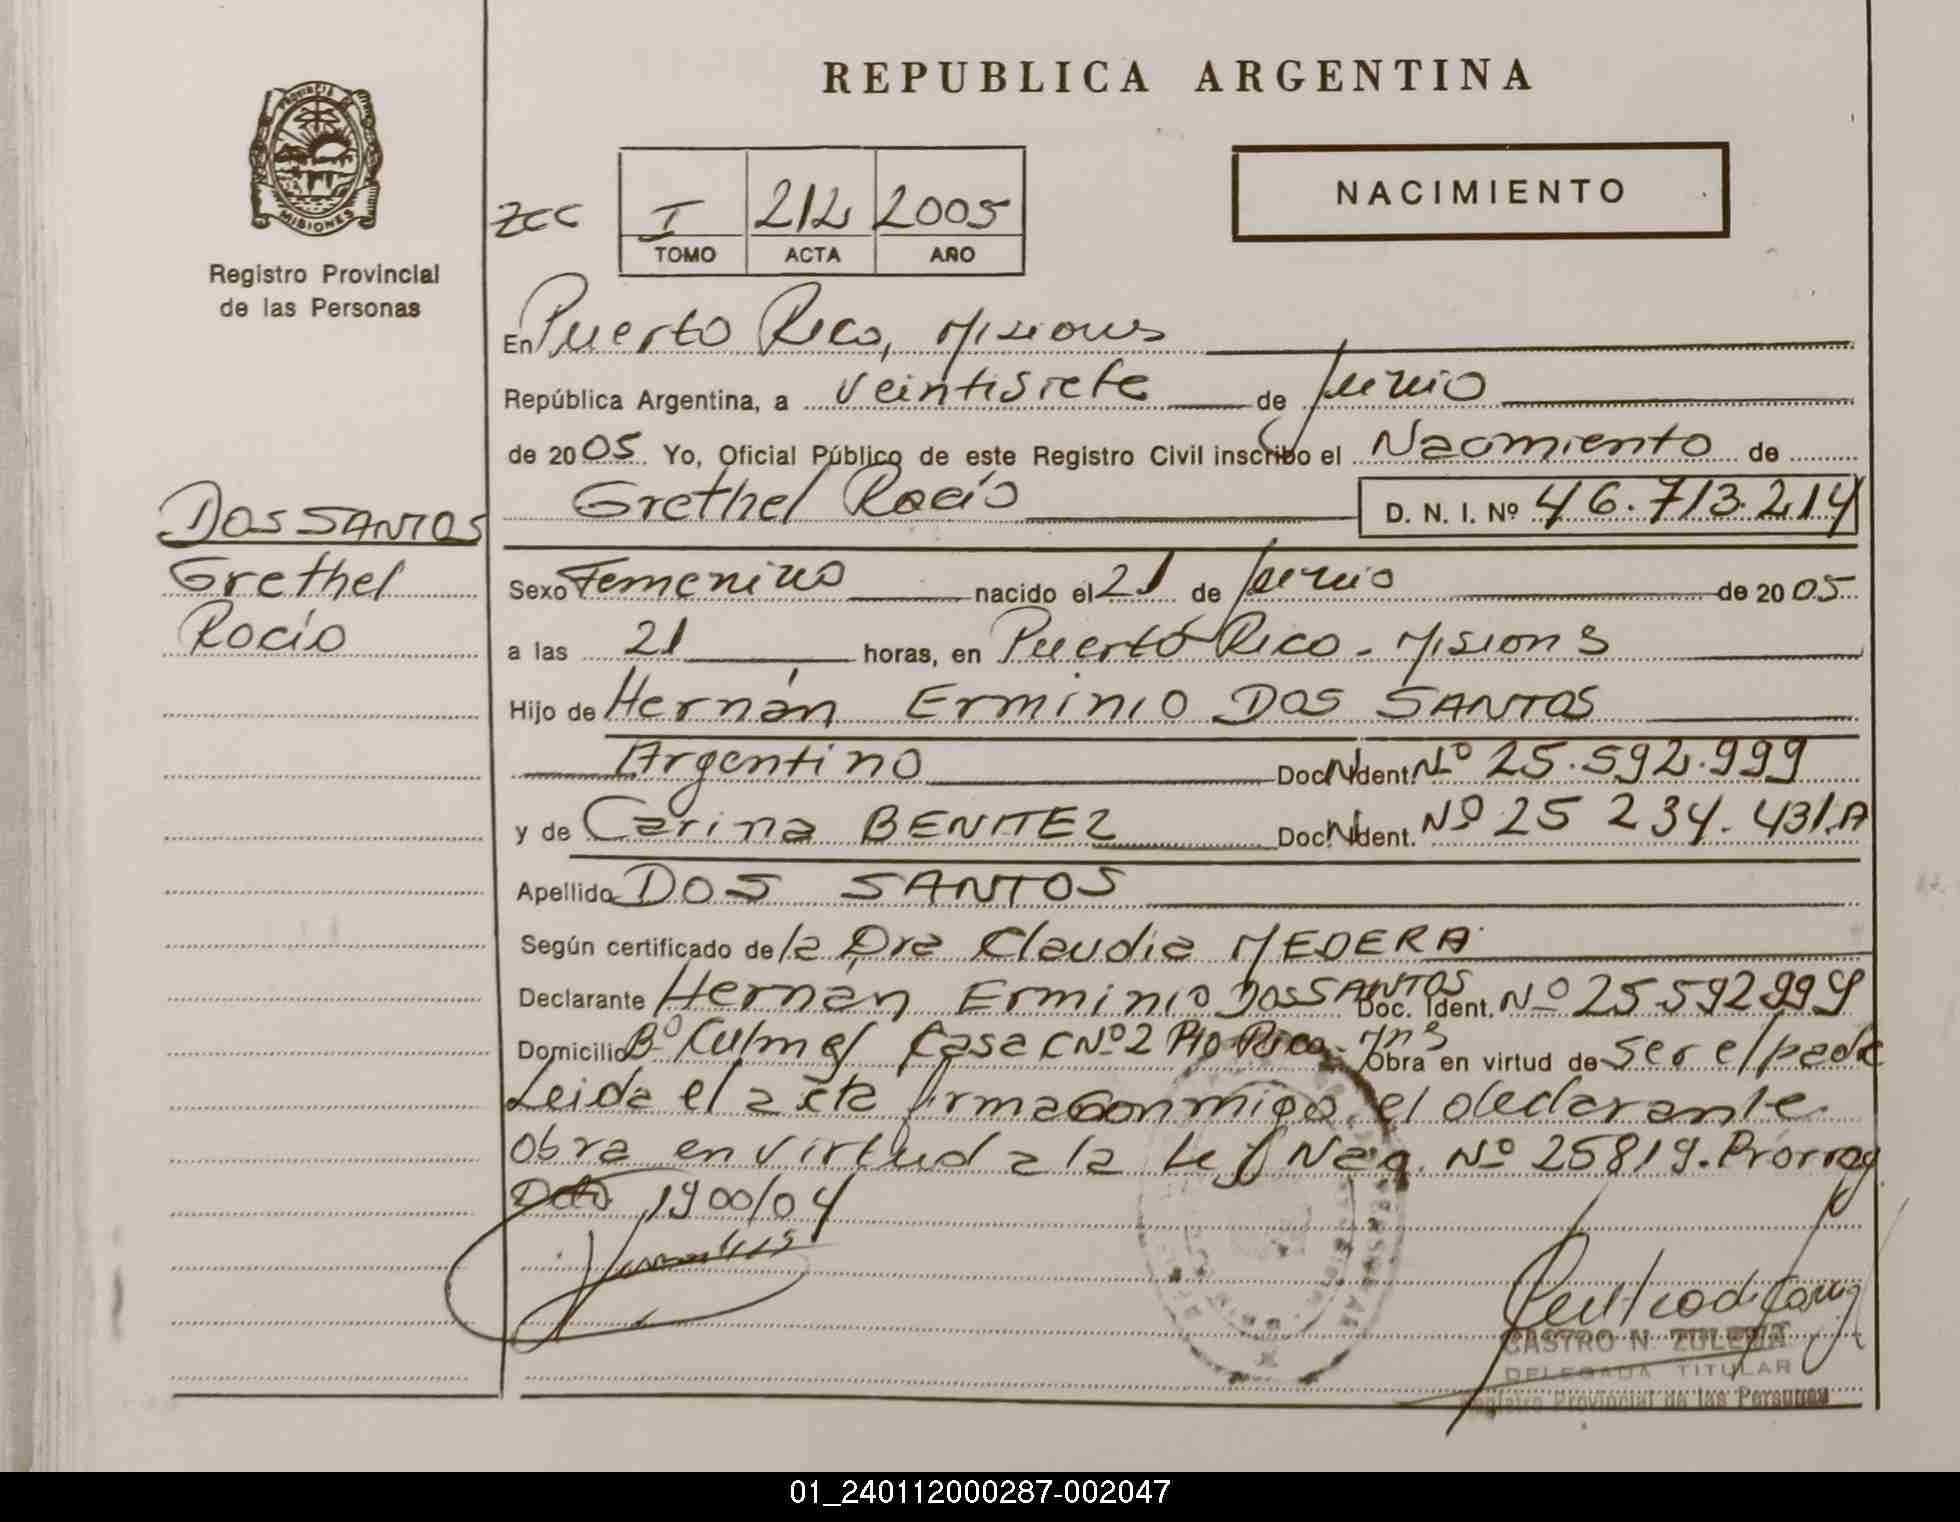 REPUBLICA ARGENTINA
PROVINCIA DE
MISIONES
Registro Provincial
de las Personas
NACIMIENTO
zcc
I 212 2005
TOMO ACTA AÑO
En Puerto Rico, Misiones
República Argentina, a veintisiete de junio
de 2005 Yo, Oficial Público de este Registro Civil inscribo el Nacimiento de
Grethel Rocío D. N. I. Nº 46.713.214
DOS SANTOS
Grethel
Rocío
Sexo Femenino nacido el 21 de junio de 2005
a las 21 horas, en Puerto Rico - Misiones
Hijo de Hernán Erminio DOS SANTOS
Argentino Doc. Ident. Nº 25.592.999
y de Carina BENITEZ Doc. Ident. Nº 25 234.431.A
Apellido DOS SANTOS
Según certificado de la Dra Claudia MEDERA
Declarante Hernan Erminio DOS SANTOS Doc. Ident. Nº 25592999
Domicilio Bº Culmey Casa Nº 2 Pto Rico - Mns Obra en virtud de ser el padre
Leida el acta firma conmigo el declarante
Obra en virtud a la Ley Nac. Nº 25819. Prorrog
Dcto 1900/04
CASTRO N. ZULEMA
DELEGADA TITULAR
Registro Provincial de las Personas
01_240112000287-002047